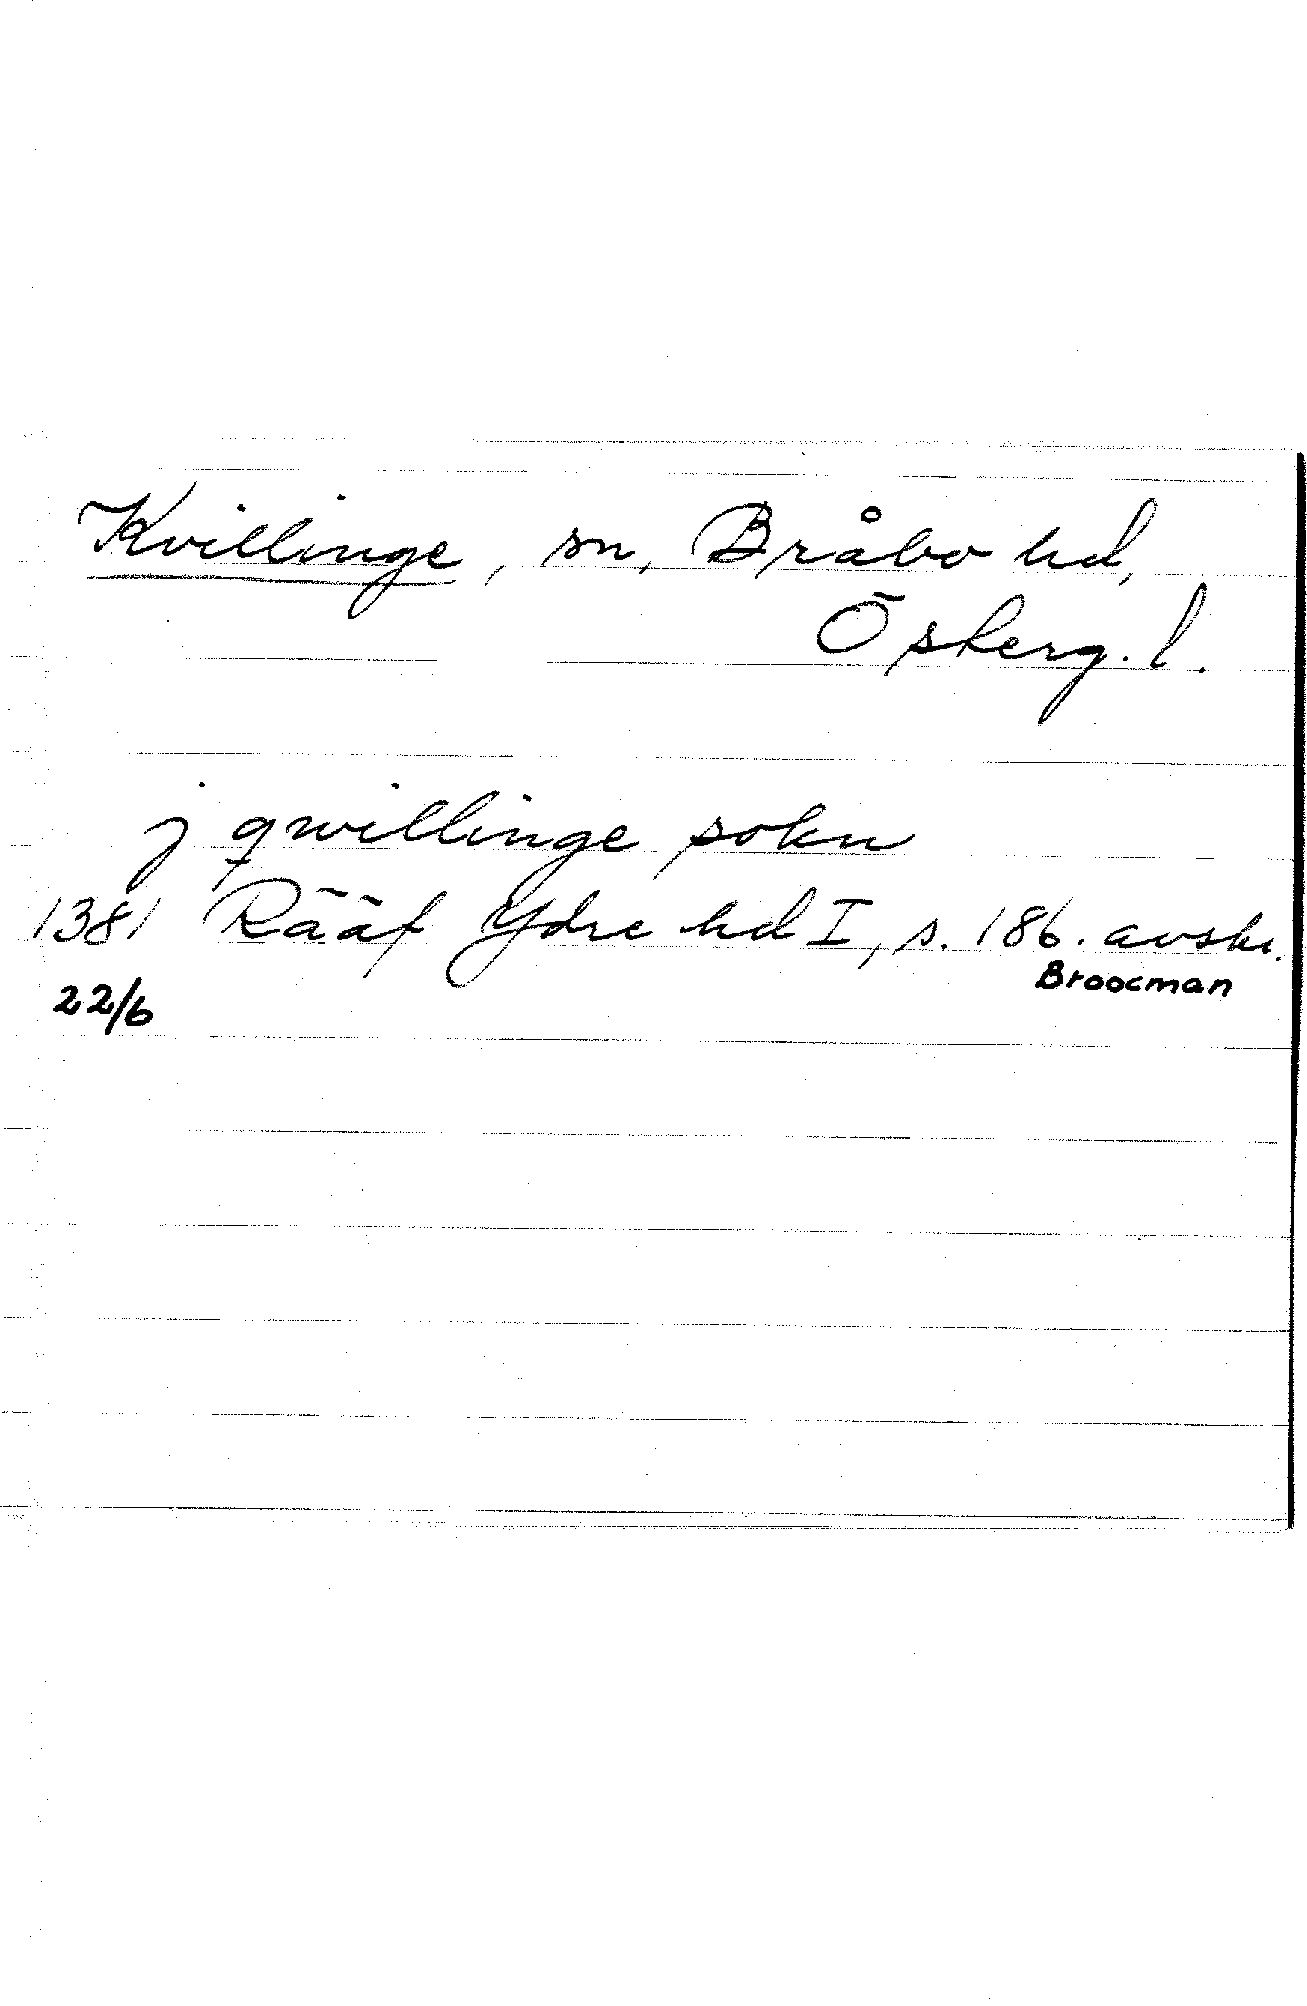 Kvillinge, sn, Bråbo hd,
Österg. l.
j qwillinge sokn
1381 Rääf Ydre hd I, s. 186. avskr.
Broocman
22/6